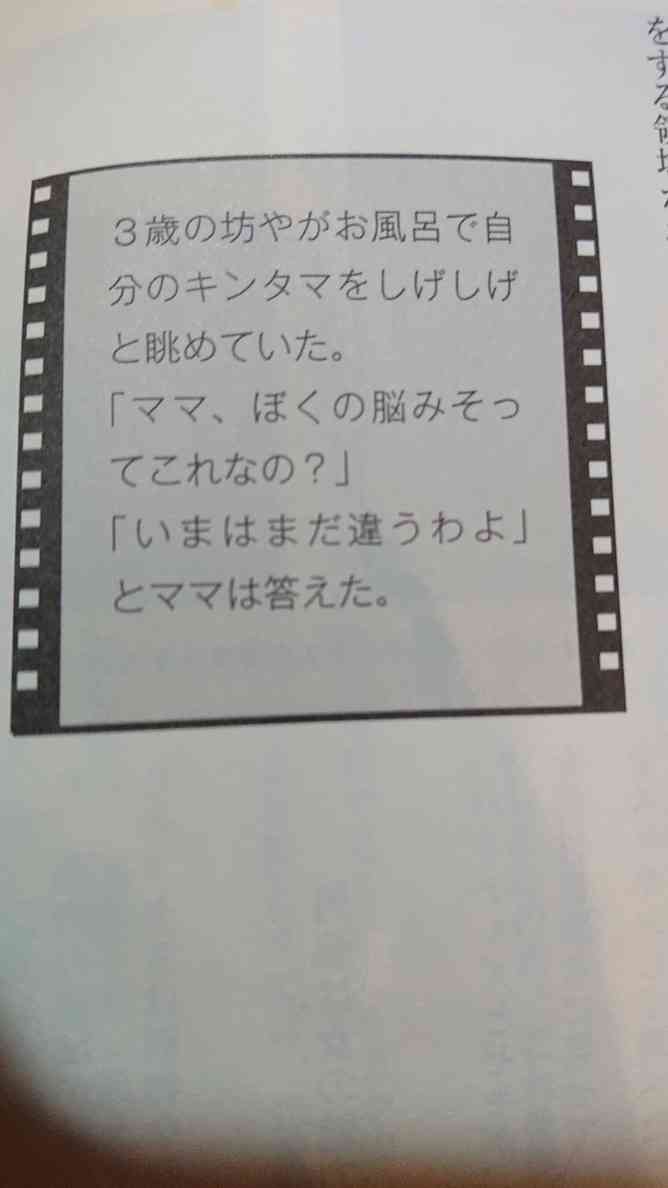 ３歳の坊やがお風呂で自
分のキンタマをしげしげ
と眺めていた。
「ママ、ぼくの脳みそっ
てこれなの？」
「いまはまだ違うわよ」
とママは答えた。
をする